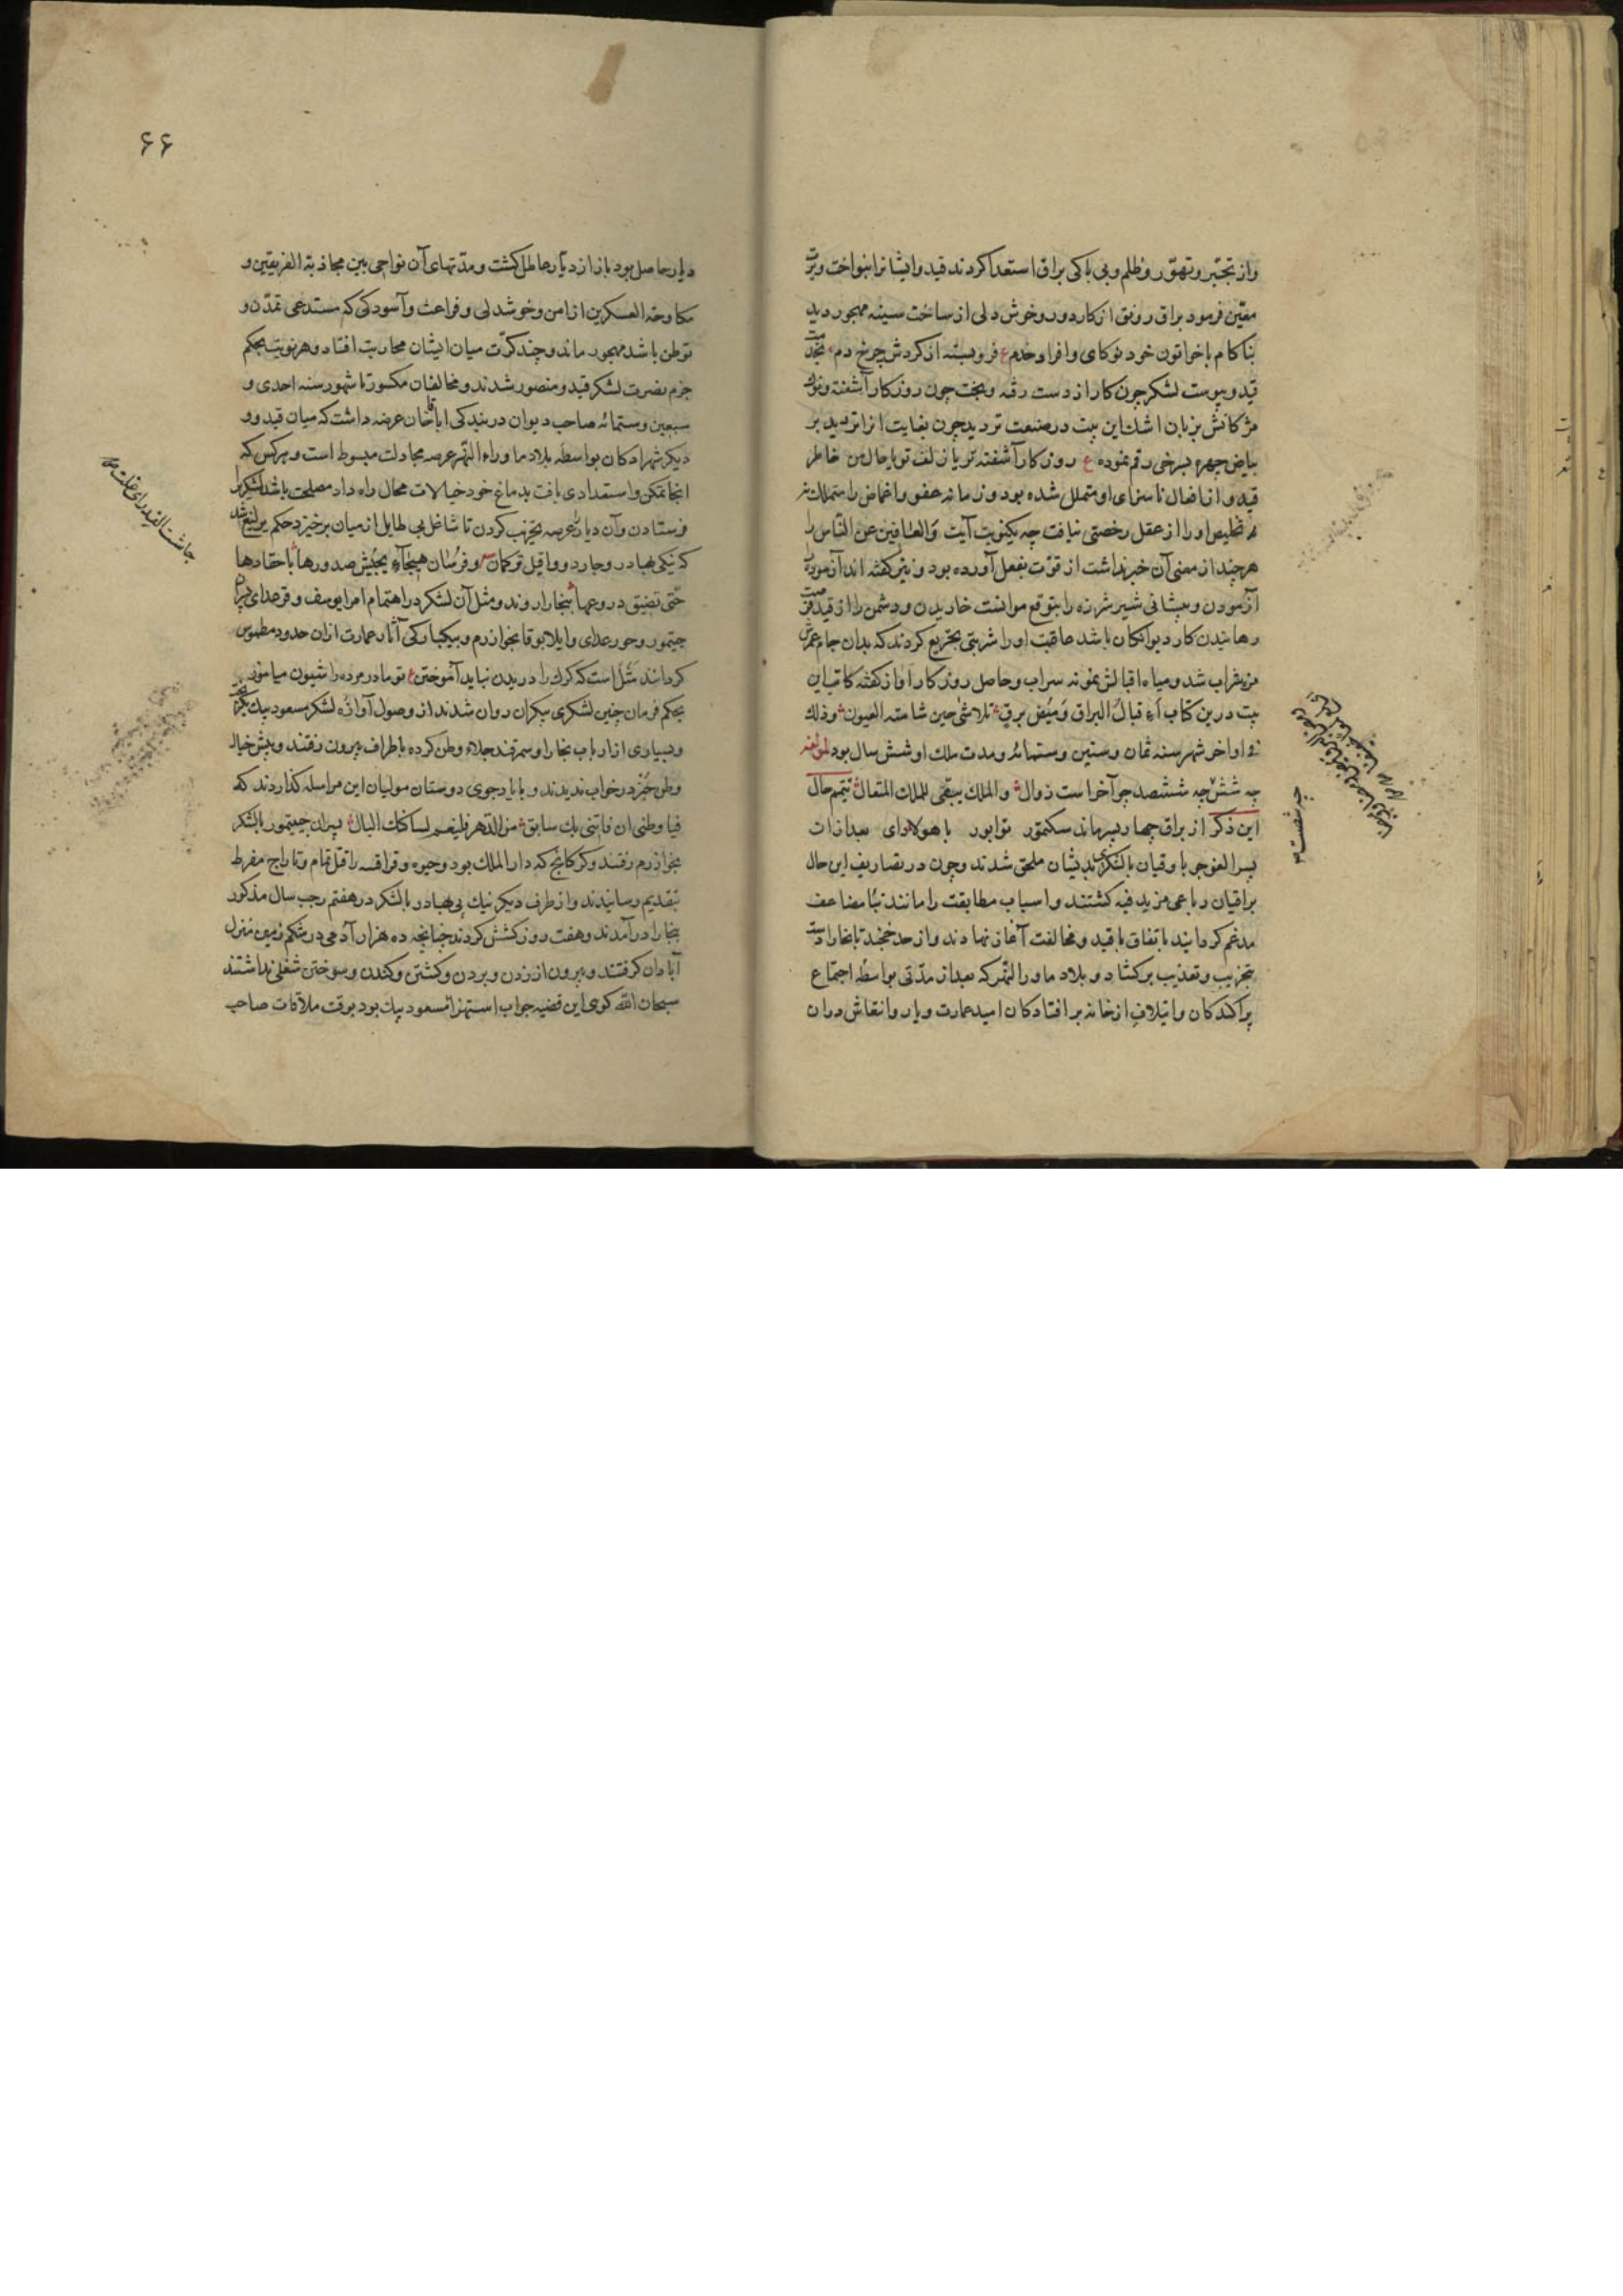 و از تجبّر و تهوّر و ظلم و بی باکی براق استعدا کردند قیدو ایشانرا بنواخت و
معیّن فرمود براق رونق از کار دور و خوش دلی از ساخت سینه مهجور دید
بناکام با خواتون خود نوکای و افراد خدم ع فروبسته از گردش چرخ دم
قیدو پیوست لشکر چون کار از دست رفته و بخت چون روزگار آشفته و نوک
مژگانش بزبان اشک این بیت در صنعت تردید چون بغایت
بیاض چهره بسرخی رقم نموده ع روزگار آشفته تر یا زلف تو یا حال من خاطر
قیدو از افعال ناسزای او متململ شده بود و زمانه عفو و اغماض را
تخلیص او را از عقل رخصتی نیافت چه آیت وَالعافین عن النّاس را
هرچند از معنی آن خبر نداشت از قوّت بفعل آورده بود و نیز گفته اند آزموده را
آزمودن و پیشانی شیر شرزه را بتوقع موانست خاریدن و دشمن را از قید
رهانیدن کار دیوانگان باشد عاقبت او را شربتی تجریع کردند که بدان جام
شراب شد و میاه اقبالش نمونه سراب و حاصل روزگار او از گفته کاتب این
بیت درین کتاب البراق و میض برق تلاشی حین شامته العیون و ذلک
فی اواخر شهر سنه ثمان و ستین و ستمائه و مدت ملک او شش سال بود لمولفه
چه شش چه ششصد چو آخر است زوال و الملک یبقی للملک المتعال تتمیم حال
این ذکر از براق چهار پسر ماند سکتمور توابور باهولادای بعد از ان
پسر الغو جو با و قیان با لشکر بدیشان ملحق شدند و چون در تصاریف این حال
براقیان رباعی مزید فیه گشتند و اسباب مطابقت را مانند مضاعف
مدغم گردانید باتفاق با قیدو مخالفت آغاز نهادند و از حد خجند تا بخارا دست
بتخریب و تعذیب برکشاد و بلاد ماوراالنّهر که بعد از مدّتی بواسطه اجتماع
پراکندگان و ایتلاف از خانه بر افتادگان امید عمارت و انتعاش در ان
چه شصت
۶۶
دیار حاصل بود باز از دیّار عاطل گشت و مدّتهای آن نواحی بین مجاذبة الفریقین و
مکاوحة العسکرین از امن و خوشدلی و فراغت و آسودگی که مستدعی تمدّن و
توطن باشد مهجور ماند و چند کرّت میان ایشان محاربت افتاد و هر نوبت بحکم
حزم نصرت لشکر قیدو منصور شدند و مخالفان مکسور تا شهور سنه احدی و
سبعین و ستمائه صاحب دیوان در بندگی اباقا خان عرضه داشت که میان قیدو و
دیگر شهزادگان بواسطه بلاد ماوراء النّهر عرصه مجادلت مبسوط است و هرکس که
آنجا تمکن و استعدادی یافت بدماغ خود خیالات محال راه داد مصلحت باشد لشکر
فرستادن و آن دیار را عرصه تخریب کردن تا شاغل بی طایل از میان برخیزد حکم یرلیغ شد
که نیکی بهادر و جاردو و اقبل ترکمان و فرسان هیجاء یجیش صدورها باحقادها
حتّی تضیق دروعها ببخارا روند و مثل آن لشکر در اهتمام امرا یوسف و قرغدای پسران
جیتمور و جورغدای و ایلابوقا بخوارزم و بیکبارگی آثار عمارت ازان حدود مطموس
گردانند مثل است که گرگ را دریدن نباید آموختن ع تو مادر مرده را شیون میاموز
بحکم فرمان چنین لشکری بیکران روان شدند از وصول آوازه لشکر مسعود بیک
و بسیاری از ارباب بخارا و سمرقند جلاء وطن کرده باطراف بیرون رفتند و بیش خیال
وطن جز در خواب ندیدند و با یاد جوی دوستان مولیان این مراسله گذاردند که
فیا وطنی ان فاتنی بک سابق من الدهر فلینعم لساکنک البال پسران جیتمور با لشکر
بخوارزم رفتند و کرکانج که دار الملک بود و خیوه و قراقسه را قتل تمام و تاراج مفرط
بتقدیم رسانیدند و از طرف دیگر نیک پی بهادر با لشکر در هفتم رجب سال مذکور
بخارا در آمدند و هفت روز کشش کردند چنانچه ده هزار آدمی در شکم زمین منزل
آبادان گرفتند و بیرون از زدن و بردن و کشتن و کندن و سوختن شغلی نداشتند
سبحان الله گوی این قضیه جواب استهزا مسعود بیک بود بوقت ملاقات صاحب